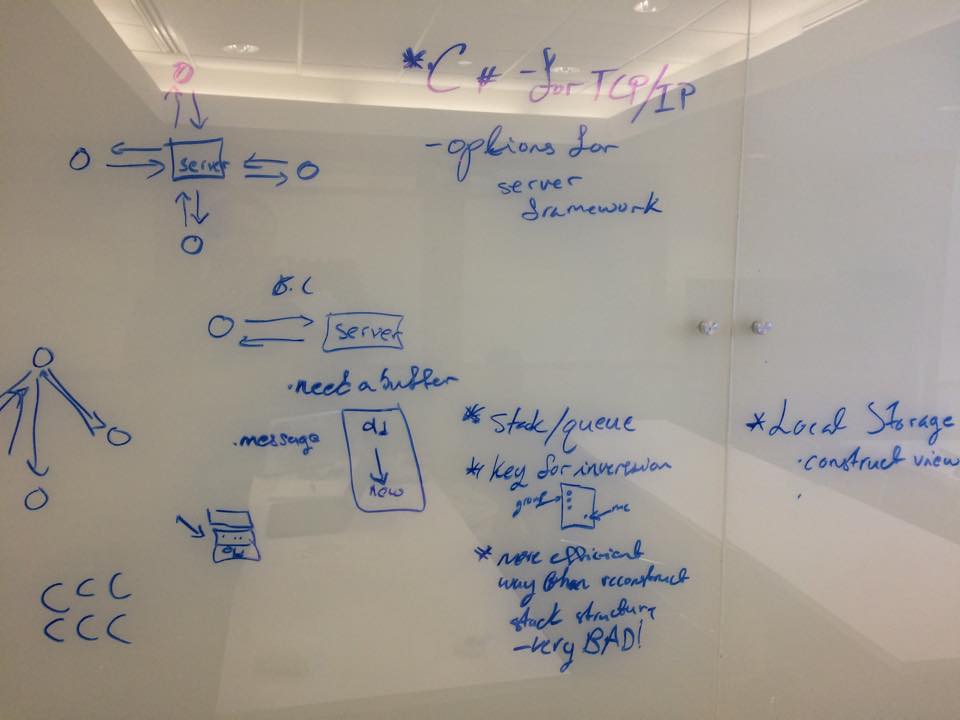 * C# - for TCP/IP
- options for
server
framework
server
server
· need a buffer
· message
old
new
* Stack/queue
* Key for inversion
group
me
* more efficient
way than reconstruct
stack structure
- very BAD!
* Local Storage
· construct view
old
C C C
C C C